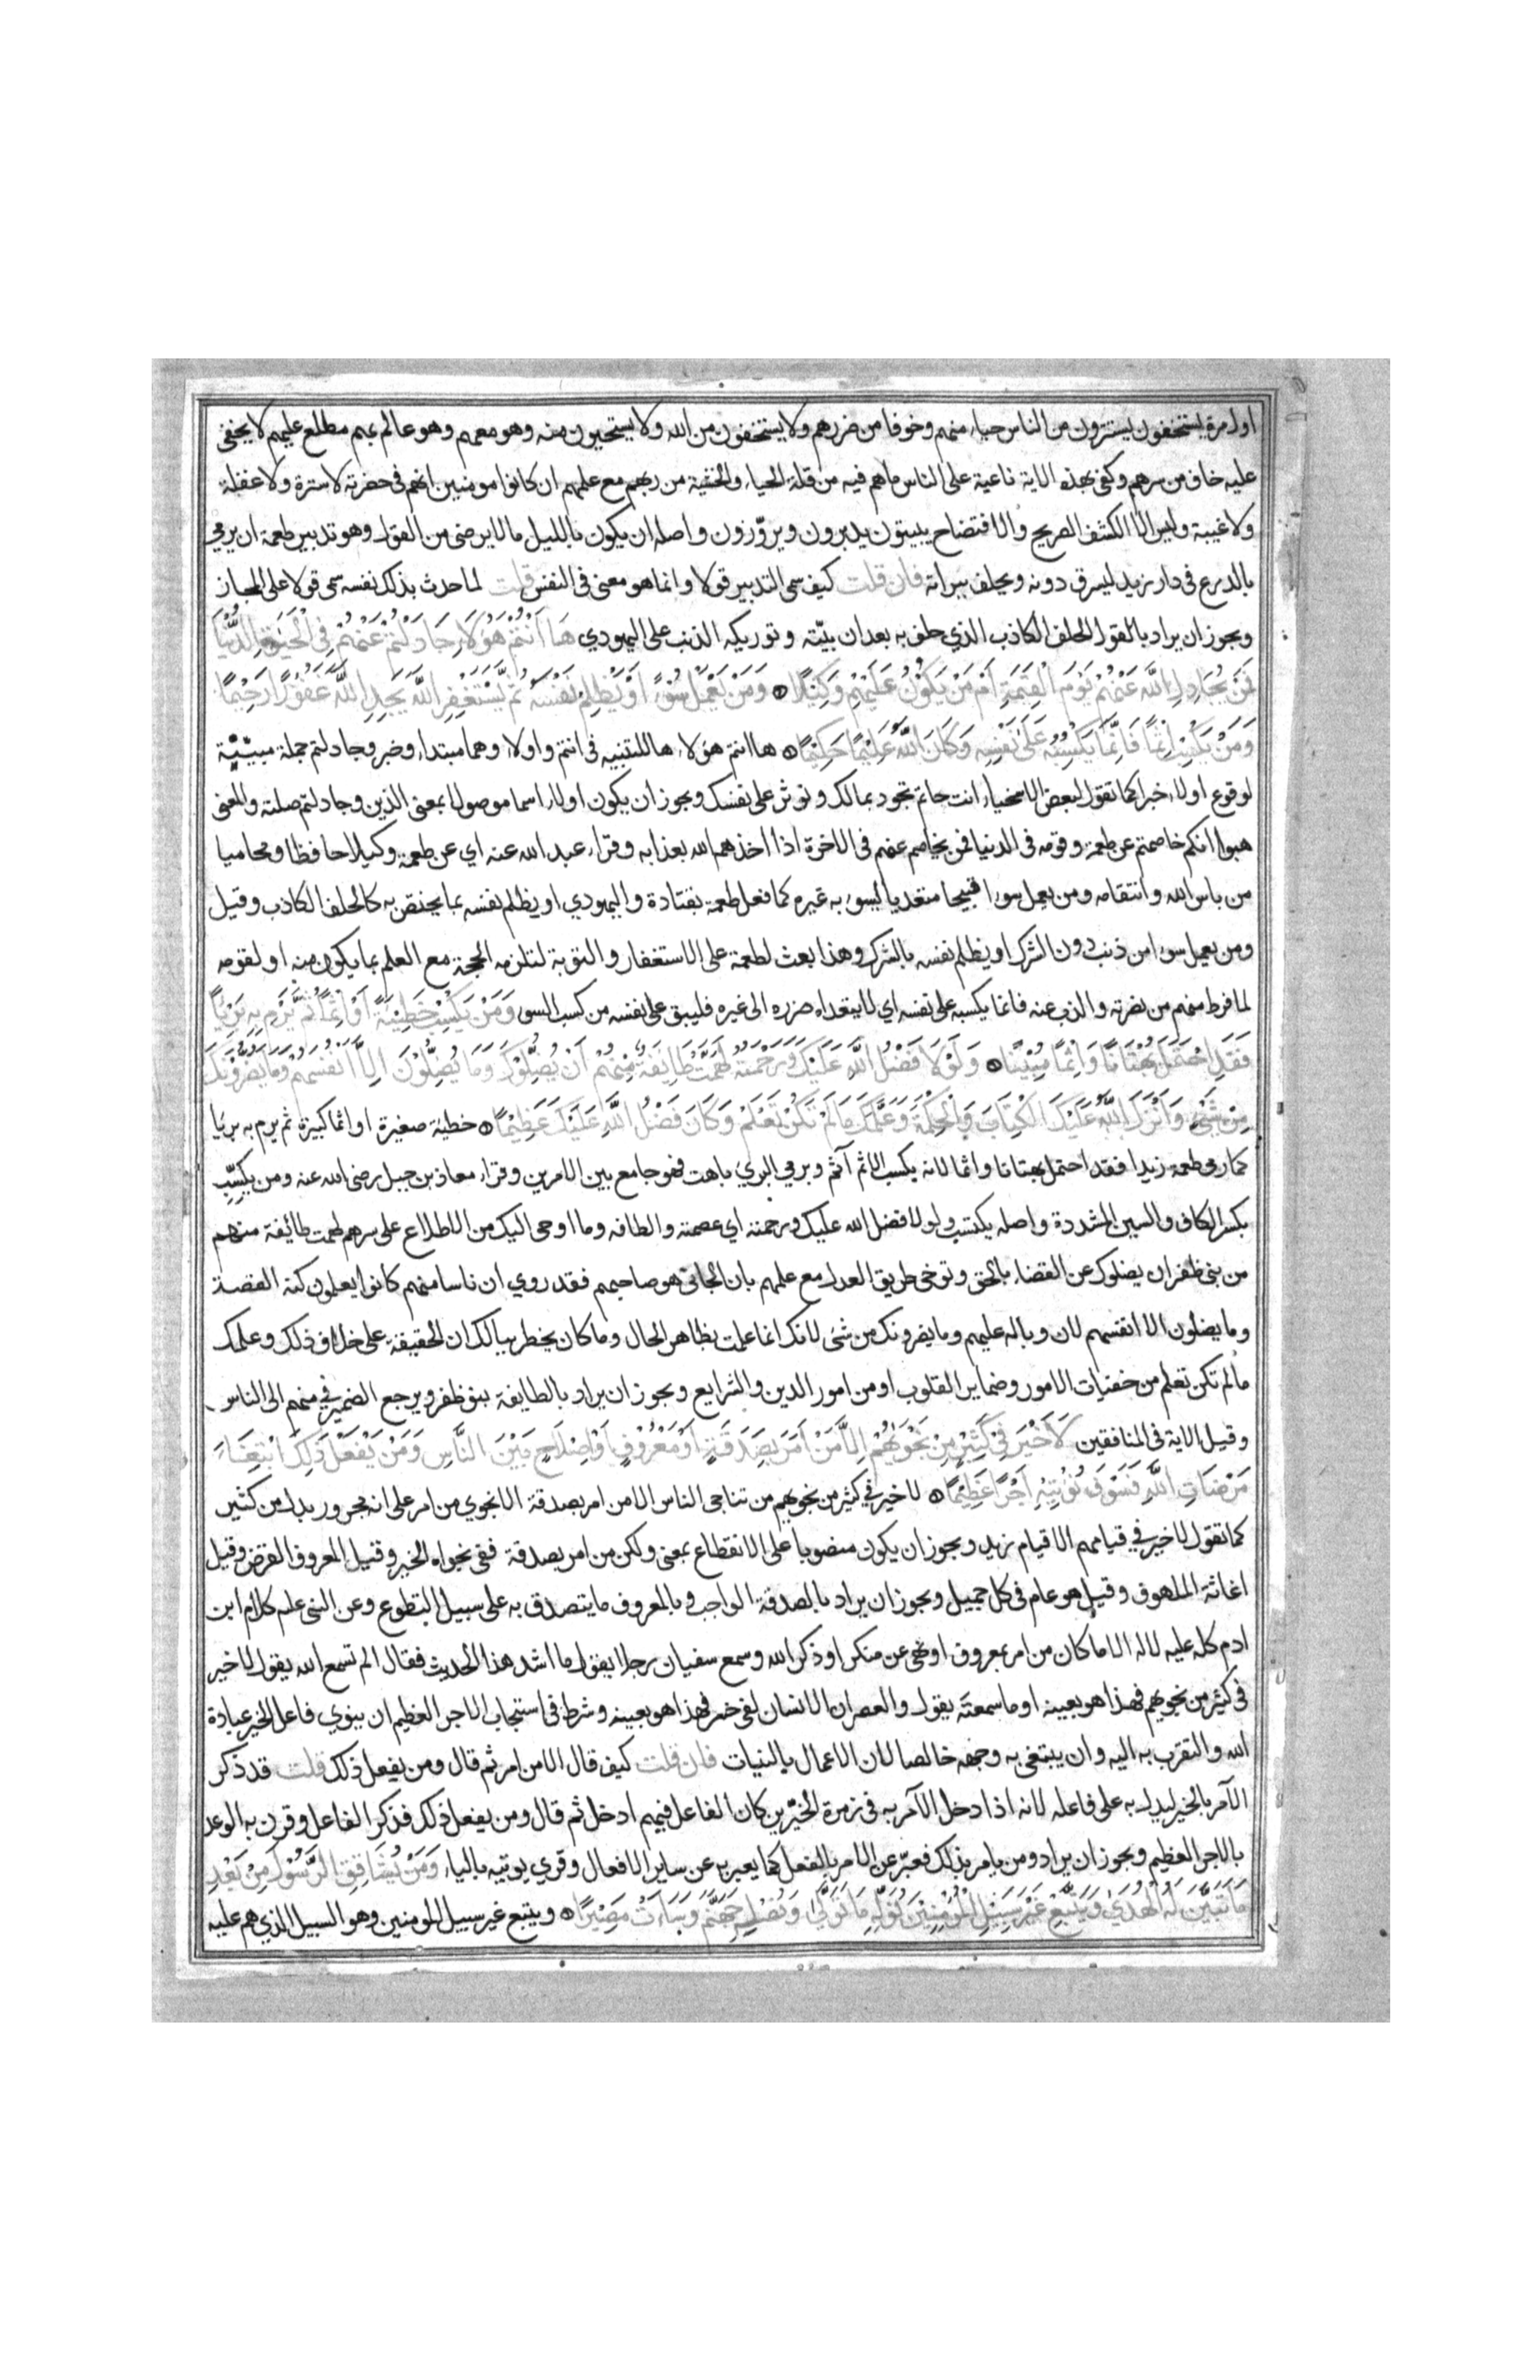 اول مرة يستخفون يستترون من الناس حياء منهم وخوفا من ضررهم ولا يستخفون من الله ولا يستحيون منه وهو معهم وهو عالم بهم مطلع عليهم لا يخفى
عليه خاف من سرهم وكفى بهذه الاية ناعية على الناس ما هم فيه من قلة الحياء والخشية من ربهم مع علمهم ان كانوا مومنين انهم في حضرته لا سترة ولا غفلة
ولا غيبة وليس الا الكشف الصريح والافتضاح يبيتون يدبرون ويزوّرون واصله ان يكون بالليل ما لا يرضى من القول وهو تدبير طعمة ان يرمي
بالدرع في دار زيد ليسرق دونه ويحلف ببراته فان قلت كيف سمى التدبير قولا وانما هو معنى في النفس قلت لما حدث بذلك نفسه سمى قولا على المجاز
ويجوز ان يراد بالقول الحلف الكاذب الذي حلف به بعد ان بيّته وتوريكه الذنب على اليهودي هَا اَنْتُمْ هَؤُلَاءِ جَادَلْتُمْ عَنْهُمْ فِى الْحَيوةِ الدُّنْيَا
فَمَنْ يُجَادِلُ اللَّهَ عَنْهُمْ يَوْمَ الْقِيمَةِ اَمْ مَنْ يَكُوْنُ عَلَيْهِمْ وَكِيْلًا وَمَنْ يَعْمَلْ سُوْءً اَوْ يَظْلِمْ نَفْسَهُ ثُمَّ يَسْتَغْفِرِ اللَّهَ يَجِدِ اللَّهَ غَفُوْرًا رَحِيْمًا
وَمَنْ يَكْسِبْ اِثْمًا فَاِنَّمَا يَكْسِبُهُ عَلَى نَفْسِهِ وَكَانَ اللَّهُ عَلِيْمًا حَكِيْمًا ها انتم هولاء ها للتنبيه في انتم واولاء وهما مبتداء وخبر وجادلتم جملة مبيّنة
لوقوع اولاء خبرا كما تقول لبعض الاسخياء انت حاتم تجود بمالك وتوثر على نفسك ويجوز ان يكون اولاء اسما موصولا بمعنى الذين وجادلتم صلته والمعنى
هبوا انكم خاصمتم عن طعمة وقومه في الدنيا فمن يخاصم عنهم في الاخرة اذا اخذهم الله بعذابه وقراء عبد الله عنه اي عن طعمة وكيلا حافظا ومحاميا
من باس الله وانتقامه ومن يعمل سوءا قبيحا متعديا يسوء به غيره كما فعل طعمة بقتادة واليهودي او يظلم نفسه بما يختص به كالحلف الكاذب وقيل
ومن يعمل سوءا من ذنب دون الشرك او يظلم نفسه بالشرك وهذا بعث لطعمة على الاستغفار والتوبة لتلزمه الحجة مع العلم بما يكون منه او لقومه
لما فرط منهم من نصرته والذب عنه فانما يكسبه على نفسه اي لا يتعداه ضرره الى غيره فليبق على نفسه من كسب السوء وَمَنْ يَكْسِبْ خَطِيْئَةً اَوْ اِثْمًا ثُمَّ يَرْمِ بِهِ بَرِيْئًا
فَقَدِ احْتَمَلَ بُهْتَانًا وَاِثْمًا مُبِيْنًا وَلَوْلَا فَضْلُ اللَّهِ عَلَيْكَ وَرَحْمَتُهُ لَهَمَّتْ طَائِفَةٌ مِنْهُمْ اَنْ يُضِلُّوْكَ وَمَا يُضِلُّوْنَ اِلَّا اَنْفُسَهُمْ وَمَا يَضُرُّوْنَكَ
مِنْ شَيْءٍ وَاَنْزَلَ اللَّهُ عَلَيْكَ الْكِتَابَ وَالْحِكْمَةَ وَعَلَّمَكَ مَا لَمْ تَكُنْ تَعْلَمُ وَكَانَ فَضْلُ اللَّهِ عَلَيْكَ عَظِيْمًا خطيئة صغيرة او اثما كبيرة ثم يرم به بريا
كما رمى طعمة زيدا فقد احتمل بهتانا واثما لانه يكسب الاثم آثم وبرمي البري باهت فهو جامع بين الامرين وقراء معاذ بن جبل رضى الله عنه ومن يكِسِّب
بكسر الكاف والسين المشددة واصله يكتسب ولولا فضل الله عليك ورحمته اي عصمته والطافه وما اوحى اليك من الاطلاع على سرهم لهمت طائفة منهم
من بنى ظفر ان يضلوك عن القضاء بالحق وتوخى طريق العدل مع علمهم بان الجانى هو صاحبهم فقد روي ان ناسا منهم كانوا يعلمون كنه القصة
وما يضلون الا انفسهم لان وباله عليهم وما يضرونك من شئ لانك انما عملت بظاهر الحال وما كان يخطر ببالك ان الحقيقة على خلاف ذلك وعلمك
ما لم تكن تعلم من خفيات الامور وضماير القلوب او من امور الدين والشرايع ويجوز ان يراد بالطايفة بنو ظفر ويرجع الضمير في منهم الى الناس
وقيل الاية في المنافقين لَا خَيْرَ فِى كَثِيْرٍ مِنْ نَجْوَيهُمْ اِلَّا مَنْ اَمَرَ بِصَدَقَةٍ اَوْ مَعْرُوْفٍ اَوْ اِصْلَاحٍ بَيْنَ النَّاسِ وَمَنْ يَفْعَلْ ذَلِكَ ابْتِغَاءَ
مَرْضَاتِ اللَّهِ فَسَوْفَ نُؤْتِيْهِ اَجْرًا عَظِيْمًا لا خير في كثير من نجويهم من تناجى الناس الا من امر بصدقة الا نجوي من امر على انه مجرور بدل من كثير
كما تقول لا خير في قيامهم الا قيام زيد ويجوز ان يكون منصوبا على الانقطاع بمعنى ولكن من امر بصدقة ففي نجواه الخير وقيل المعروف القرض وقيل
اغاثة الملهوف وقيل هو عام في كل جميل ويجوز ان يراد بالصدقة الواجب وبالمعروف ما يتصدق به على سبيل التطوع وعن النبى علم كلام ابن
ادم كله عليه لا له الا ما كان من امر بمعروف او نهى عن منكر او ذكر الله وسمع سفيان رجلا يقول ما اشد هذا الحديث فقال الم تسمع الله يقول لا خير
في كثير من نجويهم فهذا هو بعينه او ما سمعته يقول والعصر ان الانسان لفى خسر فهذا هو بعينه وشرط في استيجاب الاجر العظيم ان ينوي فاعل الخير عبادة
الله والتقرب به اليه وان يبتغى به وجهه خالصا لان الاعمال بالنيات فان قلت كيف قال الا من امر ثم قال ومن يفعل ذلك قلت قد ذكر
الآمر بالخير ليدل به على فاعله لانه اذا دخل الآمر به في زمرة الخيّرين كان الفاعل فيهم ادخل ثم قال ومن يفعل ذلك فذكر الفاعل وقرن به الوعد
بالاجر العظيم ويجوز ان يراد ومن يامر بذلك فعبّر عن الامر بالفعل كما يعبر به عن ساير الافعال وقري يوتيه بالياء وَمَنْ يُشَاقِقِ الرَّسُوْلَ مِنْ بَعْدِ
مَا تَبَيَّنَ لَهُ الْهُدَى وَيَتَّبِعْ غَيْرَ سَبِيْلِ الْمُوْمِنِيْنَ نُوَلِّهِ مَا تَوَلَّى وَنُصْلِهِ جَهَنَّمَ وَسَاءَتْ مَصِيْرًا ويتبع غير سبيل المومنين وهو السبيل الذي هم عليه